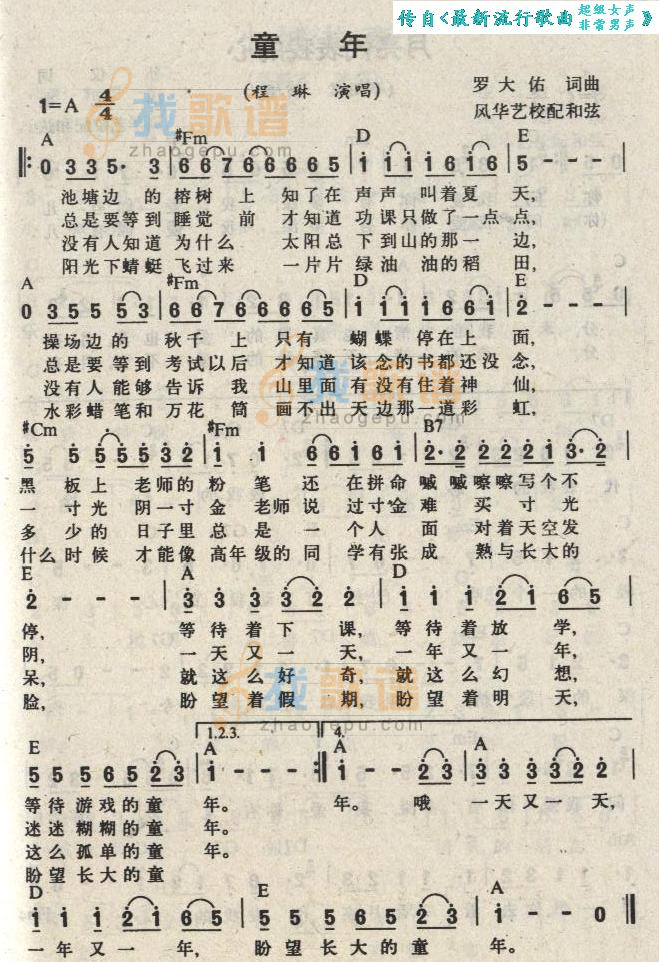 传自《最新流行歌曲 超级女声 非常男声》
童 年
1=A 4/4
(程 琳 演唱)
罗大佑 词曲
风华艺校配和弦
找歌谱
zhaogepu.com
A #Fm D E
0 3 3 5· 3 6 6 7 6 6 6 6 5 1 1 1 1 6 1 6 5 - - -
池塘边 的 榕树 上 知了在 声声 叫着夏 天,
总是要等到 睡觉 前 才知道 功课只做了一点 点,
没有人知道 为什么 太阳总 下到山的那一 边,
阳光下蜻蜓 飞过来 一片片 绿油 油的稻 田,
A #Fm D E
0 3 5 5 5 3 6 6 7 6 6 6 6 5 1 1 1 1 6 6 1 2 - - -
操场边的 秋千 上 只有 蝴蝶 停在上 面,
总是要 等到 考试以后 才知道 该念的书都还没 念,
没有人 能够 告诉 我 山里面 有没有住着神 仙,
水彩蜡笔和 万花 筒 画不出 天边那一道彩 虹,
#Cm #Fm B7
5 5 5 5 5 3 2 1 · 1 6 6 1 6 1 2· 2 2 2 2 1 3· 2
黑 板上 老师的 粉 笔 还 在拼命 嘁 嘁嚓嚓写个不
一 寸光 阴一寸 金 老师 说 过寸金 难 买 寸 光
多 少的 日子里 总 是 一 个人 面 对着天空发
什么时候 才能像 高年级的 同 学有张 成 熟与长大的
E A D
2 - - - 3 3 3 3 2 2 1 1 1 2 1 6 5
停, 等待着下 课,等待着放 学,
阴, 一天又一 天,一年又一 年,
呆, 就这么好 奇,就这么幻 想,
脸, 盼望着假 期,盼望着明 天,
找歌谱
zhaogepu.com
1.2.3. 4.
E A A A
5 5 5 6 5 2 3 1 - - - 1 - - 2 3 3 3 3 3 2 2
等待游戏的童 年。 年。 哦 一天又一天,
迷迷糊糊的童 年。
这么孤单的童 年。
盼望长大的童
D E A
1 1 1 2 1 6 5 5 5 5 6 5 2 3 1 - - 0
一年又一 年, 盼望长大的童 年。